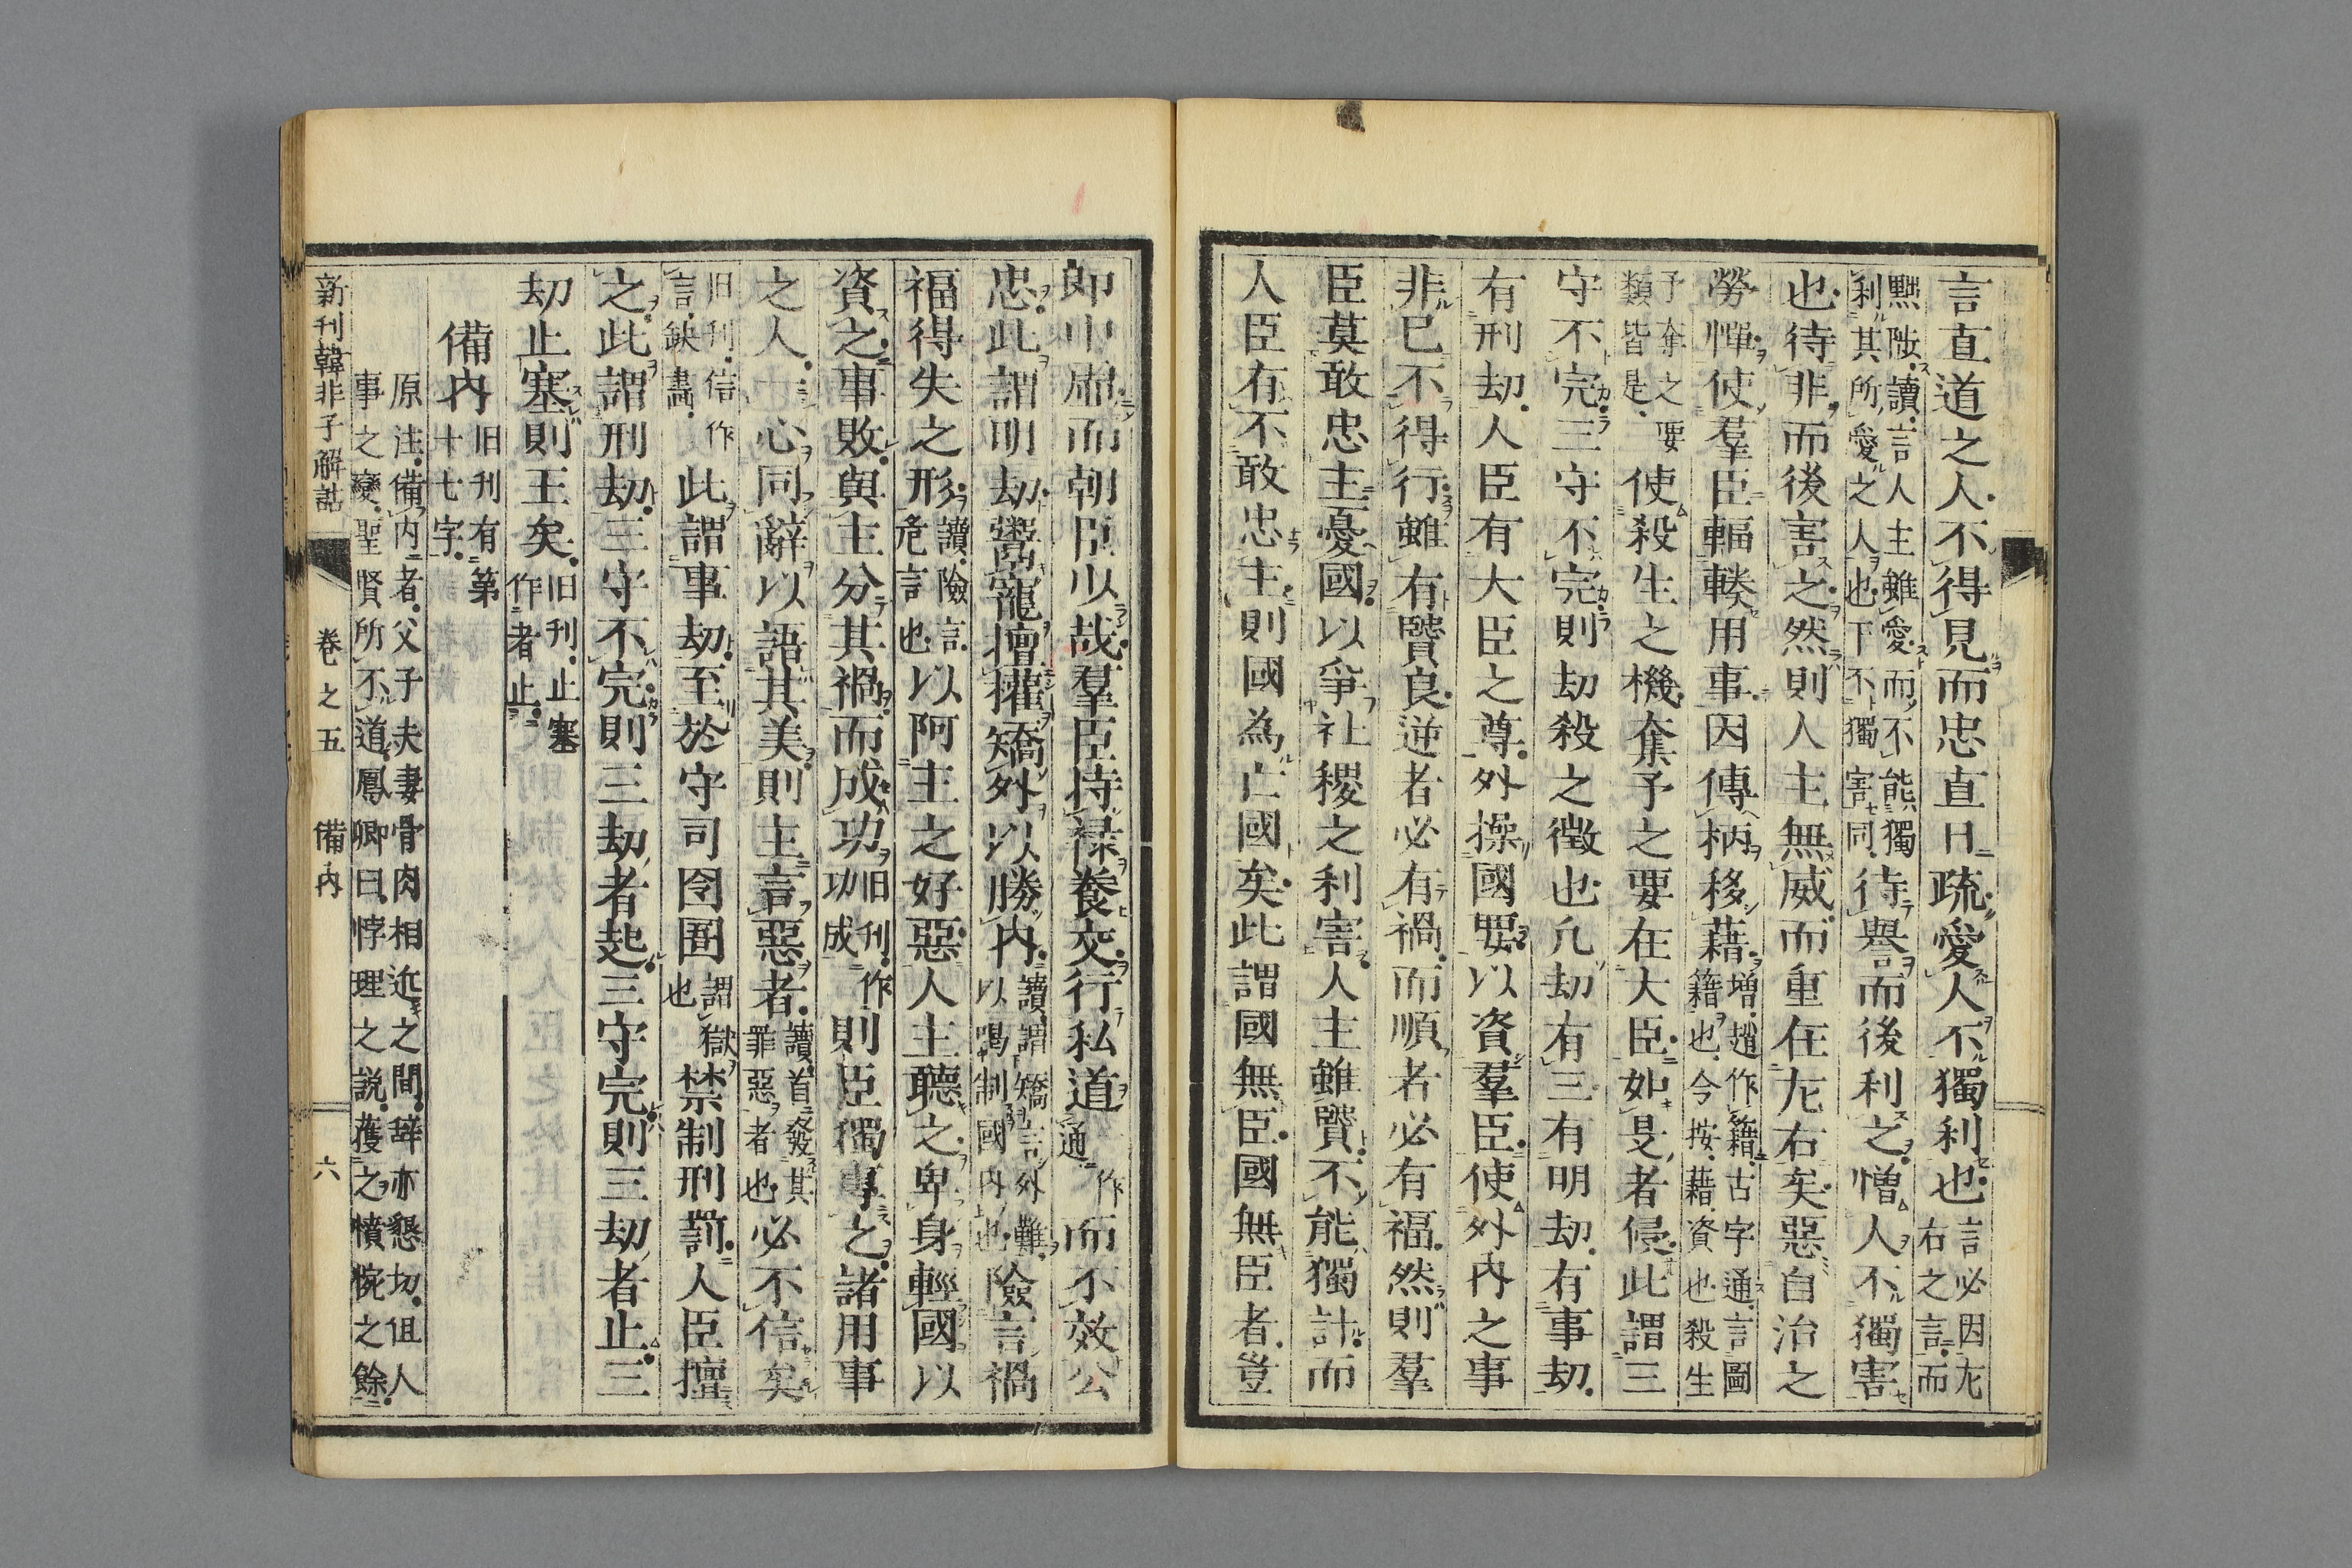 言直道之人不得見而忠直日疏愛人不獨利也言必因左右之言而
黙陟讀言人主雖愛而不能獨利其所愛之人也下不獨害同待譽而後利之憎人不獨害
也待非而後害之然則人主無威而重在左右矣惡自治之
勞憚使羣臣輻輳用事因傳柄移藉増趙作籍古字通言圖籍也今按藉資也殺生
予奪之要類皆是使殺生之機奪予之要在大臣如是者侵此謂三
守不完三守不完則劫殺之徴也凡劫有三有明劫有事劫
有刑劫人臣有大臣之尊外操國要以資羣臣使外內之事
非已不得行雖有賢良逆者必有禍而順者必有福然則羣
臣莫敢忠主憂國以爭社稷之利害人主雖賢不能獨計而
人臣有不敢忠主則國為亡國矣此謂國無臣國無臣者豈
郎中虛而朝臣少哉羣臣持祿養交行私道作通而不效公
忠此謂明劫鬻寵擅權矯外以勝內讀謂矯言外難以喝制國內也險言禍
福得失之形讀險言危言也以阿主之好惡人主聽之卑身輕國以
資之事敗與主分其禍而成功旧刊作功成則臣獨專之諸用事
之人一心同辭以語其美則主言惡者讀首發其罪惡者也必不信矣
旧刊信作言缺畫此謂事劫至於守司囹圄謂獄也禁制刑罰人臣擅
之此謂刑劫三守不完則三劫者起三守完則三劫者止三
劫止塞則王矣旧刊止塞作者止
備內旧刊有第十七字
原注備內者父子夫妻骨肉相近之間辭亦懇切但人
事之變聖賢所不道鳳卿曰悖理之說獲之憤惋之餘
新刊韓非子解詁　卷之五　備内　六